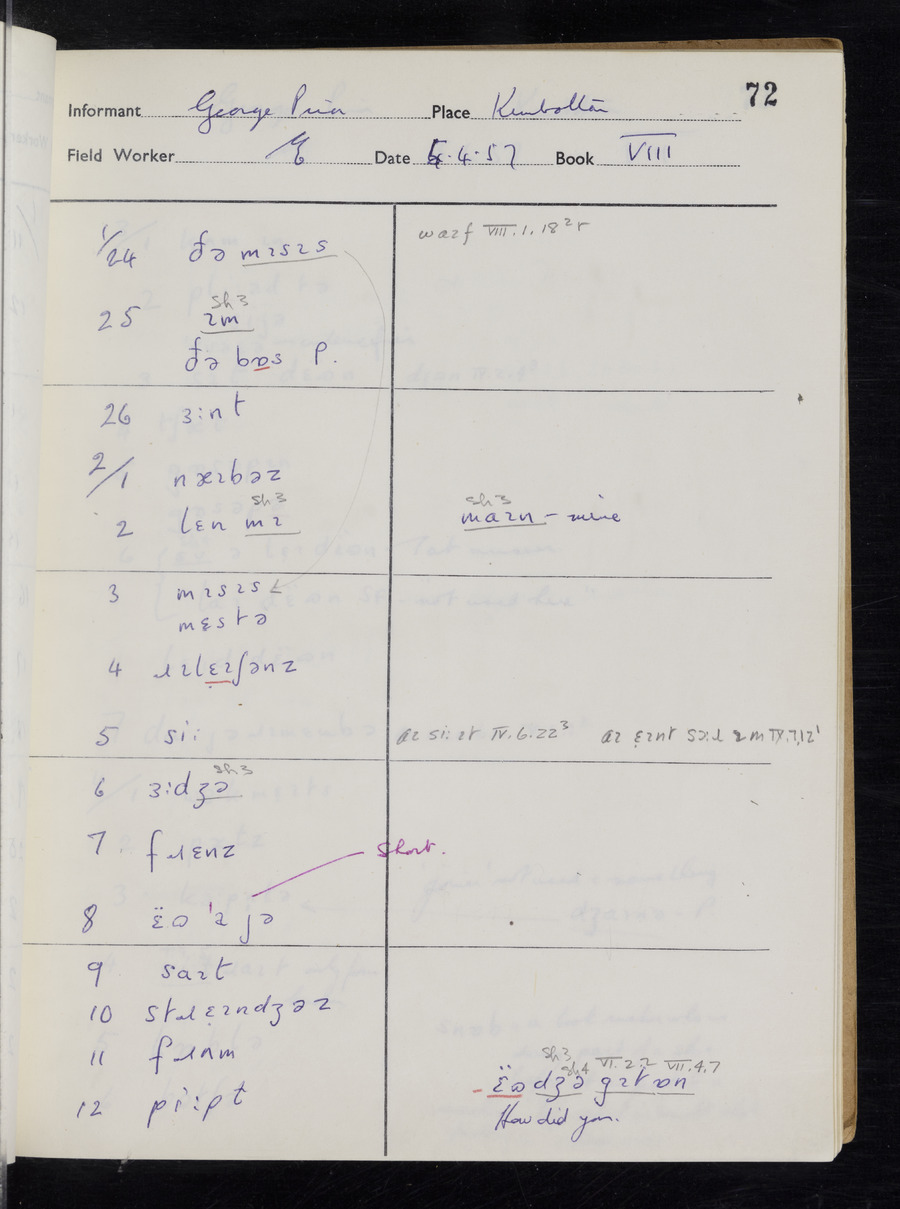 72
Informant George Place Kimbolton
Field Worker Date 4.57 Book VIII
1/24 ðə mɪsɪs
waɪf VIII.1.18²r
sh3
25 ɪm
ðə bɒs p.
26 ɜ:nt
2/1 næɪbəz
sh3 sh3
2 lɛn mɪ maɪn - mine
3 mɪsɪs
mɛstə
4 ɹɪlɛɪʃənz
5 si: aɪ si: ɪt IV.6.22³ aɪ ɛɪnt sɔ:ɹ ɪm IX.7.12¹
sh3
6 ɜ:dʒə
7 fɹɛnz short.
8 ɛ̈ɷ 'ɪ jə
9 saɪt
10 stɹɛɪndʒəz
11 fɹɒm
sh3 sh4 VI.2.2 VII.4.7
12 pi:pt - ɛ̈ɷdʒə gɪt ɒn
How did you.